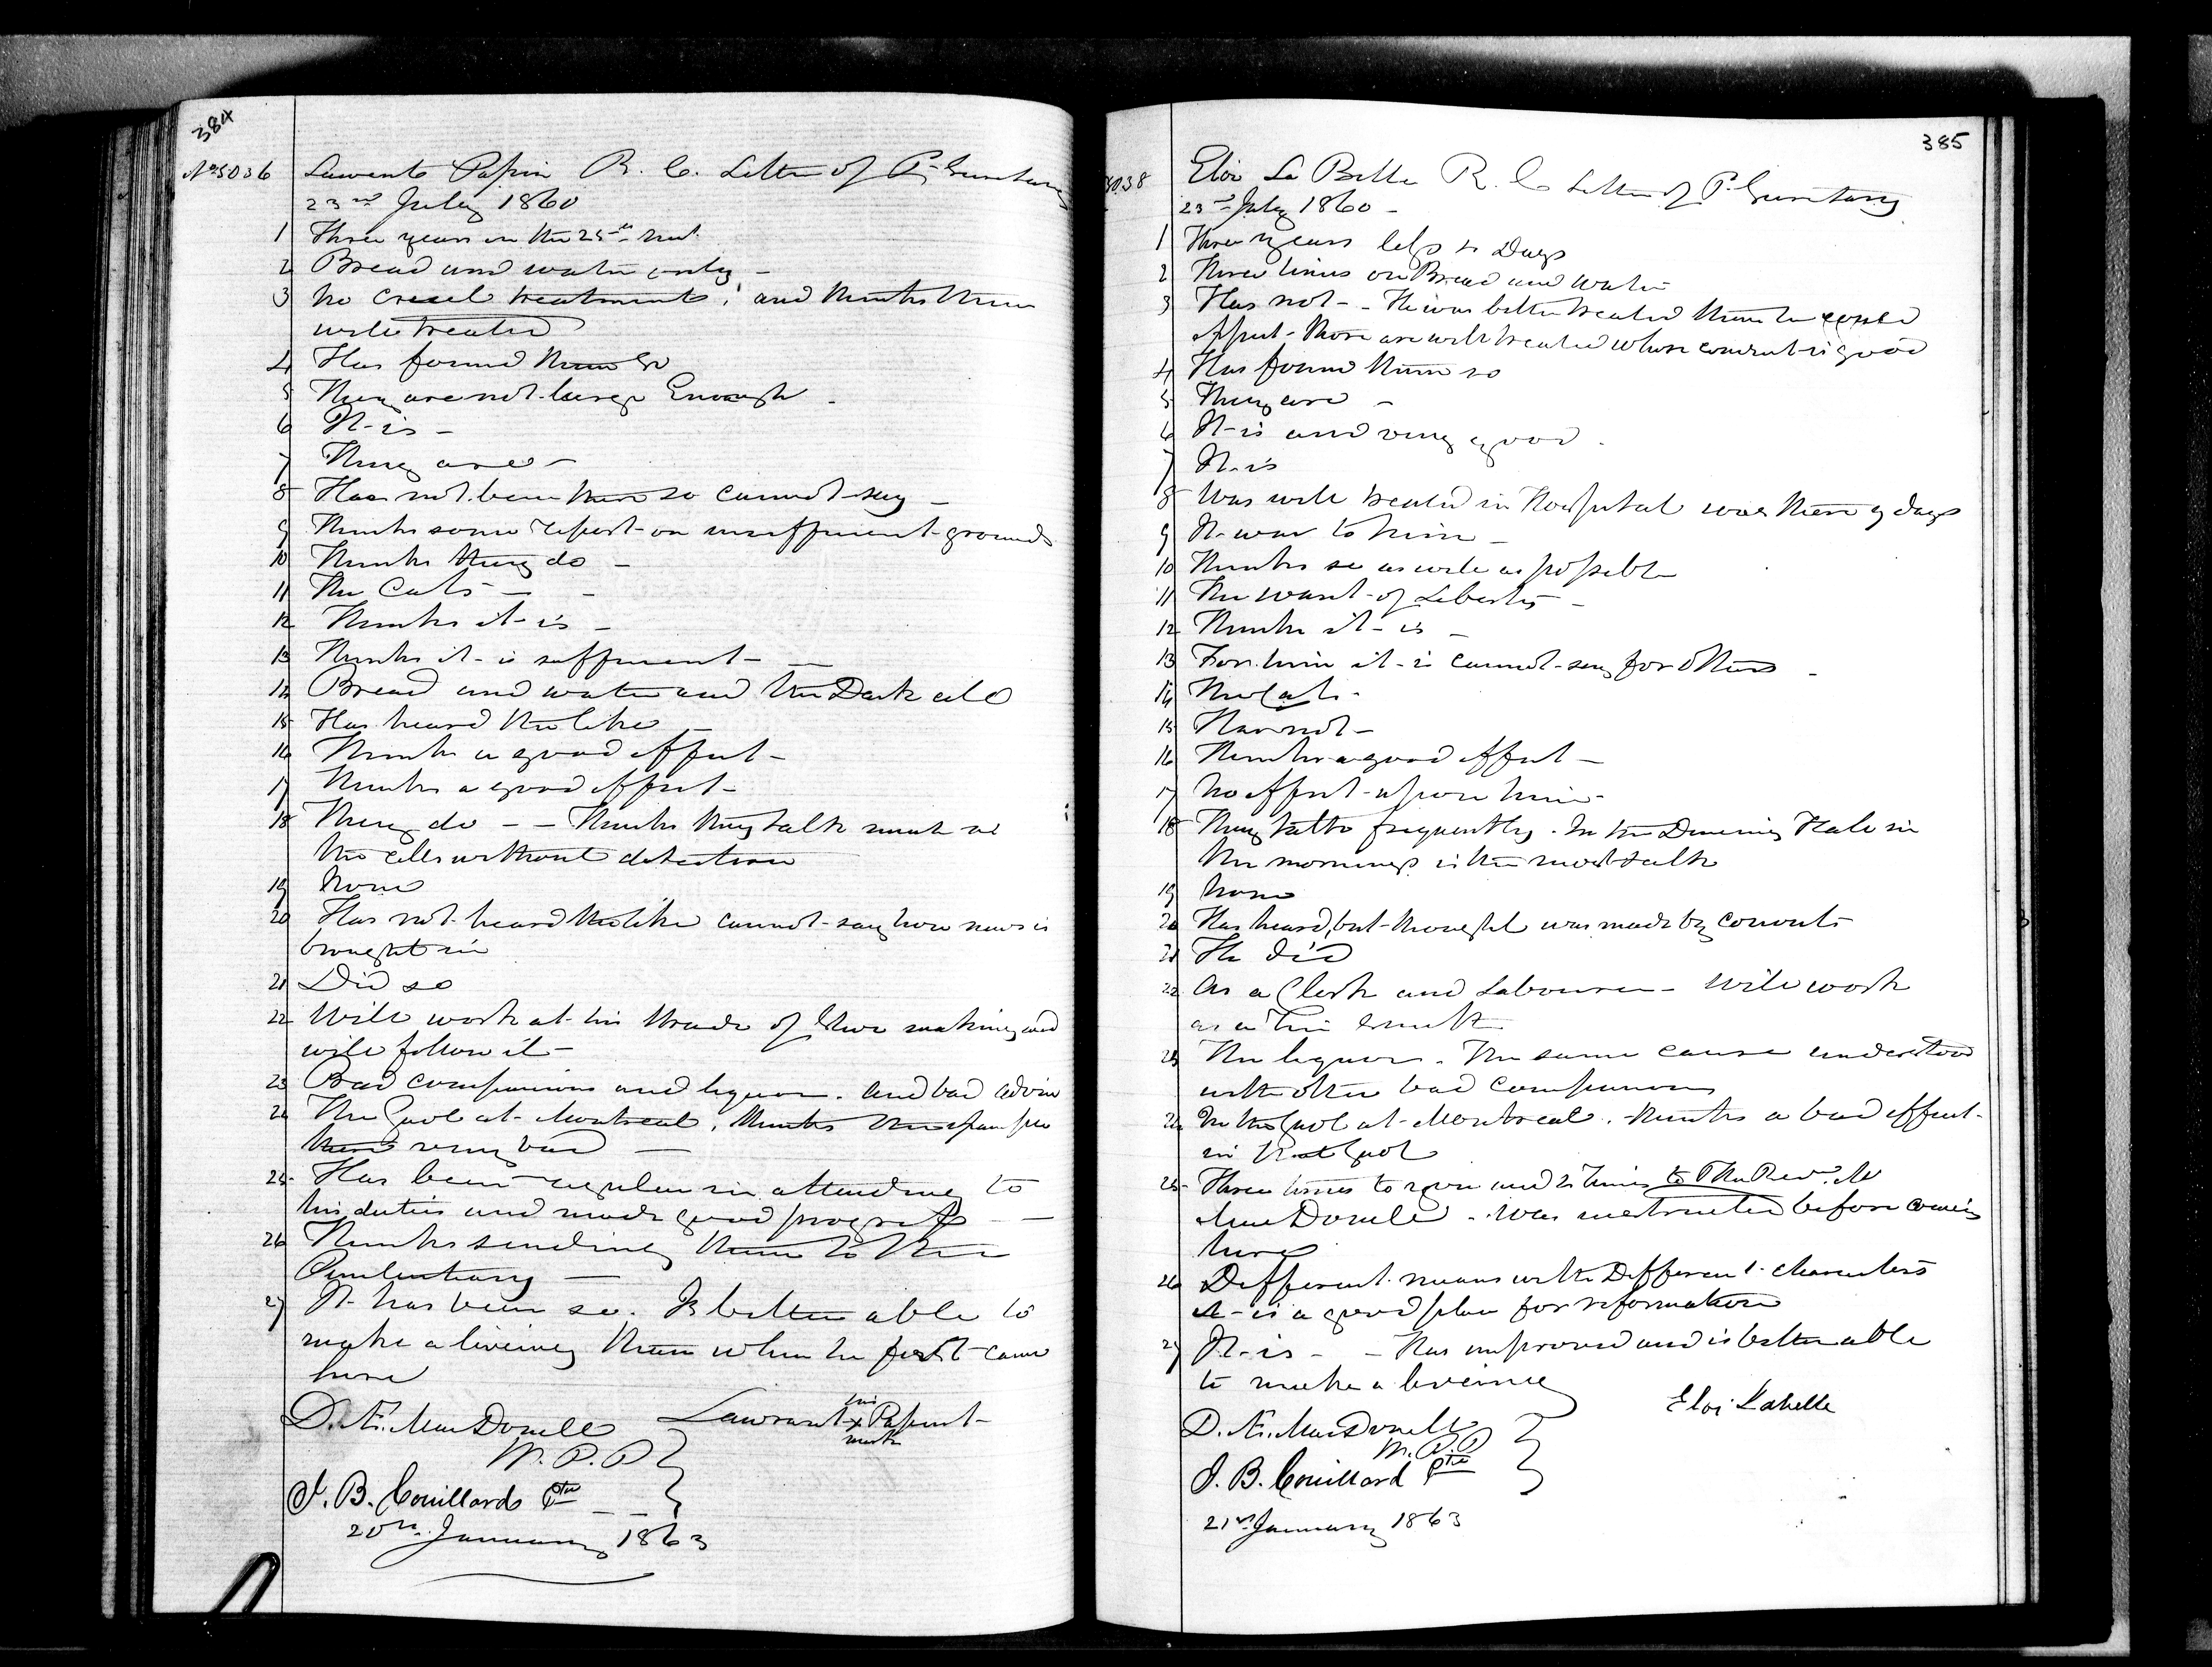 384
No 5036 Lawrents Papin R. C. Letter of P. Secretary
23rd July 1860
1 Three years on the 25th Inst.
2 Bread and water only -
3 No cruel treatments, and thinks them
well treated
4 Has found them so
5 They are not large Enough -
6 It is -
7 They are -
8 Has not been there so cannot say -
9 Thinks some report on insufficient grounds
10 Thinks they do -
11 The Cats - -
12 Thinks it is -
13 Thinks it is sufficient - -
14 Bread and water and the Dark cell
15 Has heard the like -
16 Thinks a good effect -
17 Thinks a good effect -
18 They do - - Thinks they talk much in
the cells without detection
19 None
20 Has not heard the like cannot say how news is
brought in
21 Did so
22 Will work at his thrade of Shoe making and
will follow it -
23 Bad companions and liquor. and bad advice
24 The Gaol at Montreal. Thinks the
there very bad -
25 Has been regular in attending to
his duties and made good progress -
26 Thinks sending them to the
Penitentiary -
27 It has been so. Is better able to
make a liveing than when he first came
here
D. Æ. MacDonell Lawrant his x mark Papint
W. P. P
J. B. Couillard Ptre
20th January 1863
385
5038 Eloi La Belle R. C. Letter of P. Secretary
23rd July 1860 -
1 Three years less 2 Days
2 Three times on Bread and water
3 Has not - He was better treated than he could
Expect - Those are well treated whose conduct is good
4 Has found them so
5 They are -
6 It is and very good.
7 It is
8 Was well treated in Hospital was there 9 days
9 It was to him -
10 Thinks so as well as possible
11 The want of Liberty -
12 Thinks it is -
13 For him it is cannot say for others -
14 The Cats -
15 Has not -
16 Thinks a good effect -
17 No effect upon him -
18 They talk frequently. In the Dineing Hall in
the mornings is the most talk
19 None
20 Has heard, but thought was made by convicts
21 He did
22 As a Clerk and Labourer - will work
as a Tin Smith
23 The liquor. The same cause understood
with other bad companions
24 In the Gaol at Montreal. Thinks a bad effect
in that Gaol
25 Three times to and 2 Times to The Revd. Mr
MacDonell - Was instructed before coming
here
26 Different means with Different characters
it is a good place for reformation
27 It is - - Has improved and is better able
to make a liveing
Eloi Labelle
D. Æ. MacDonell
W. P. P
J. B. Couillard Ptre
21st January 1863